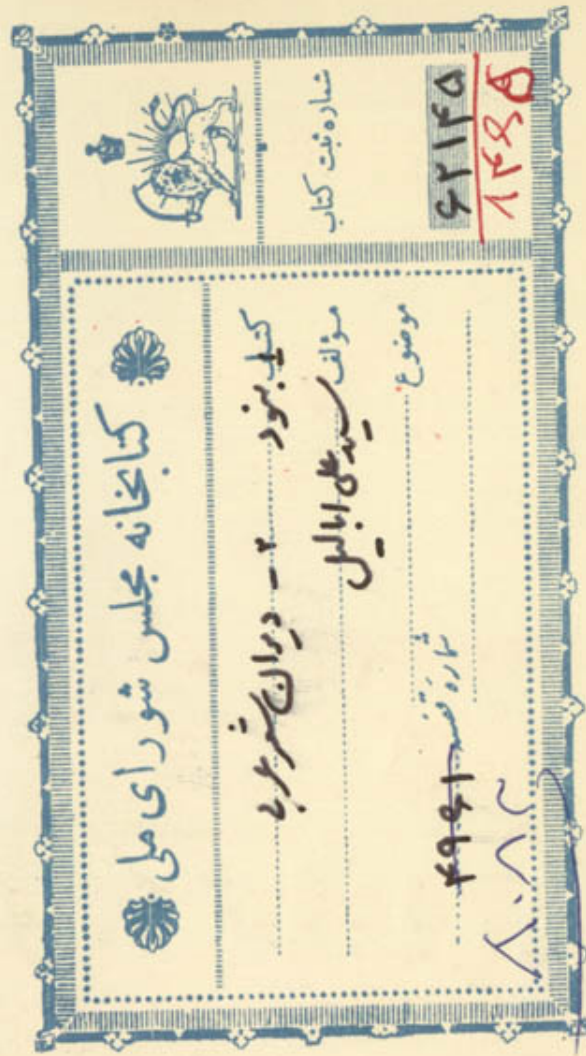 کتابخانه مجلس شورای ملی
کتاب بنود ۲- دیوان شعر عربی
مؤلف سید علی ابالیل
موضوع
شماره قفسه ۴۹۶۱
۷۰۸۲
شماره ثبت کتاب
۶۲۱۴۵